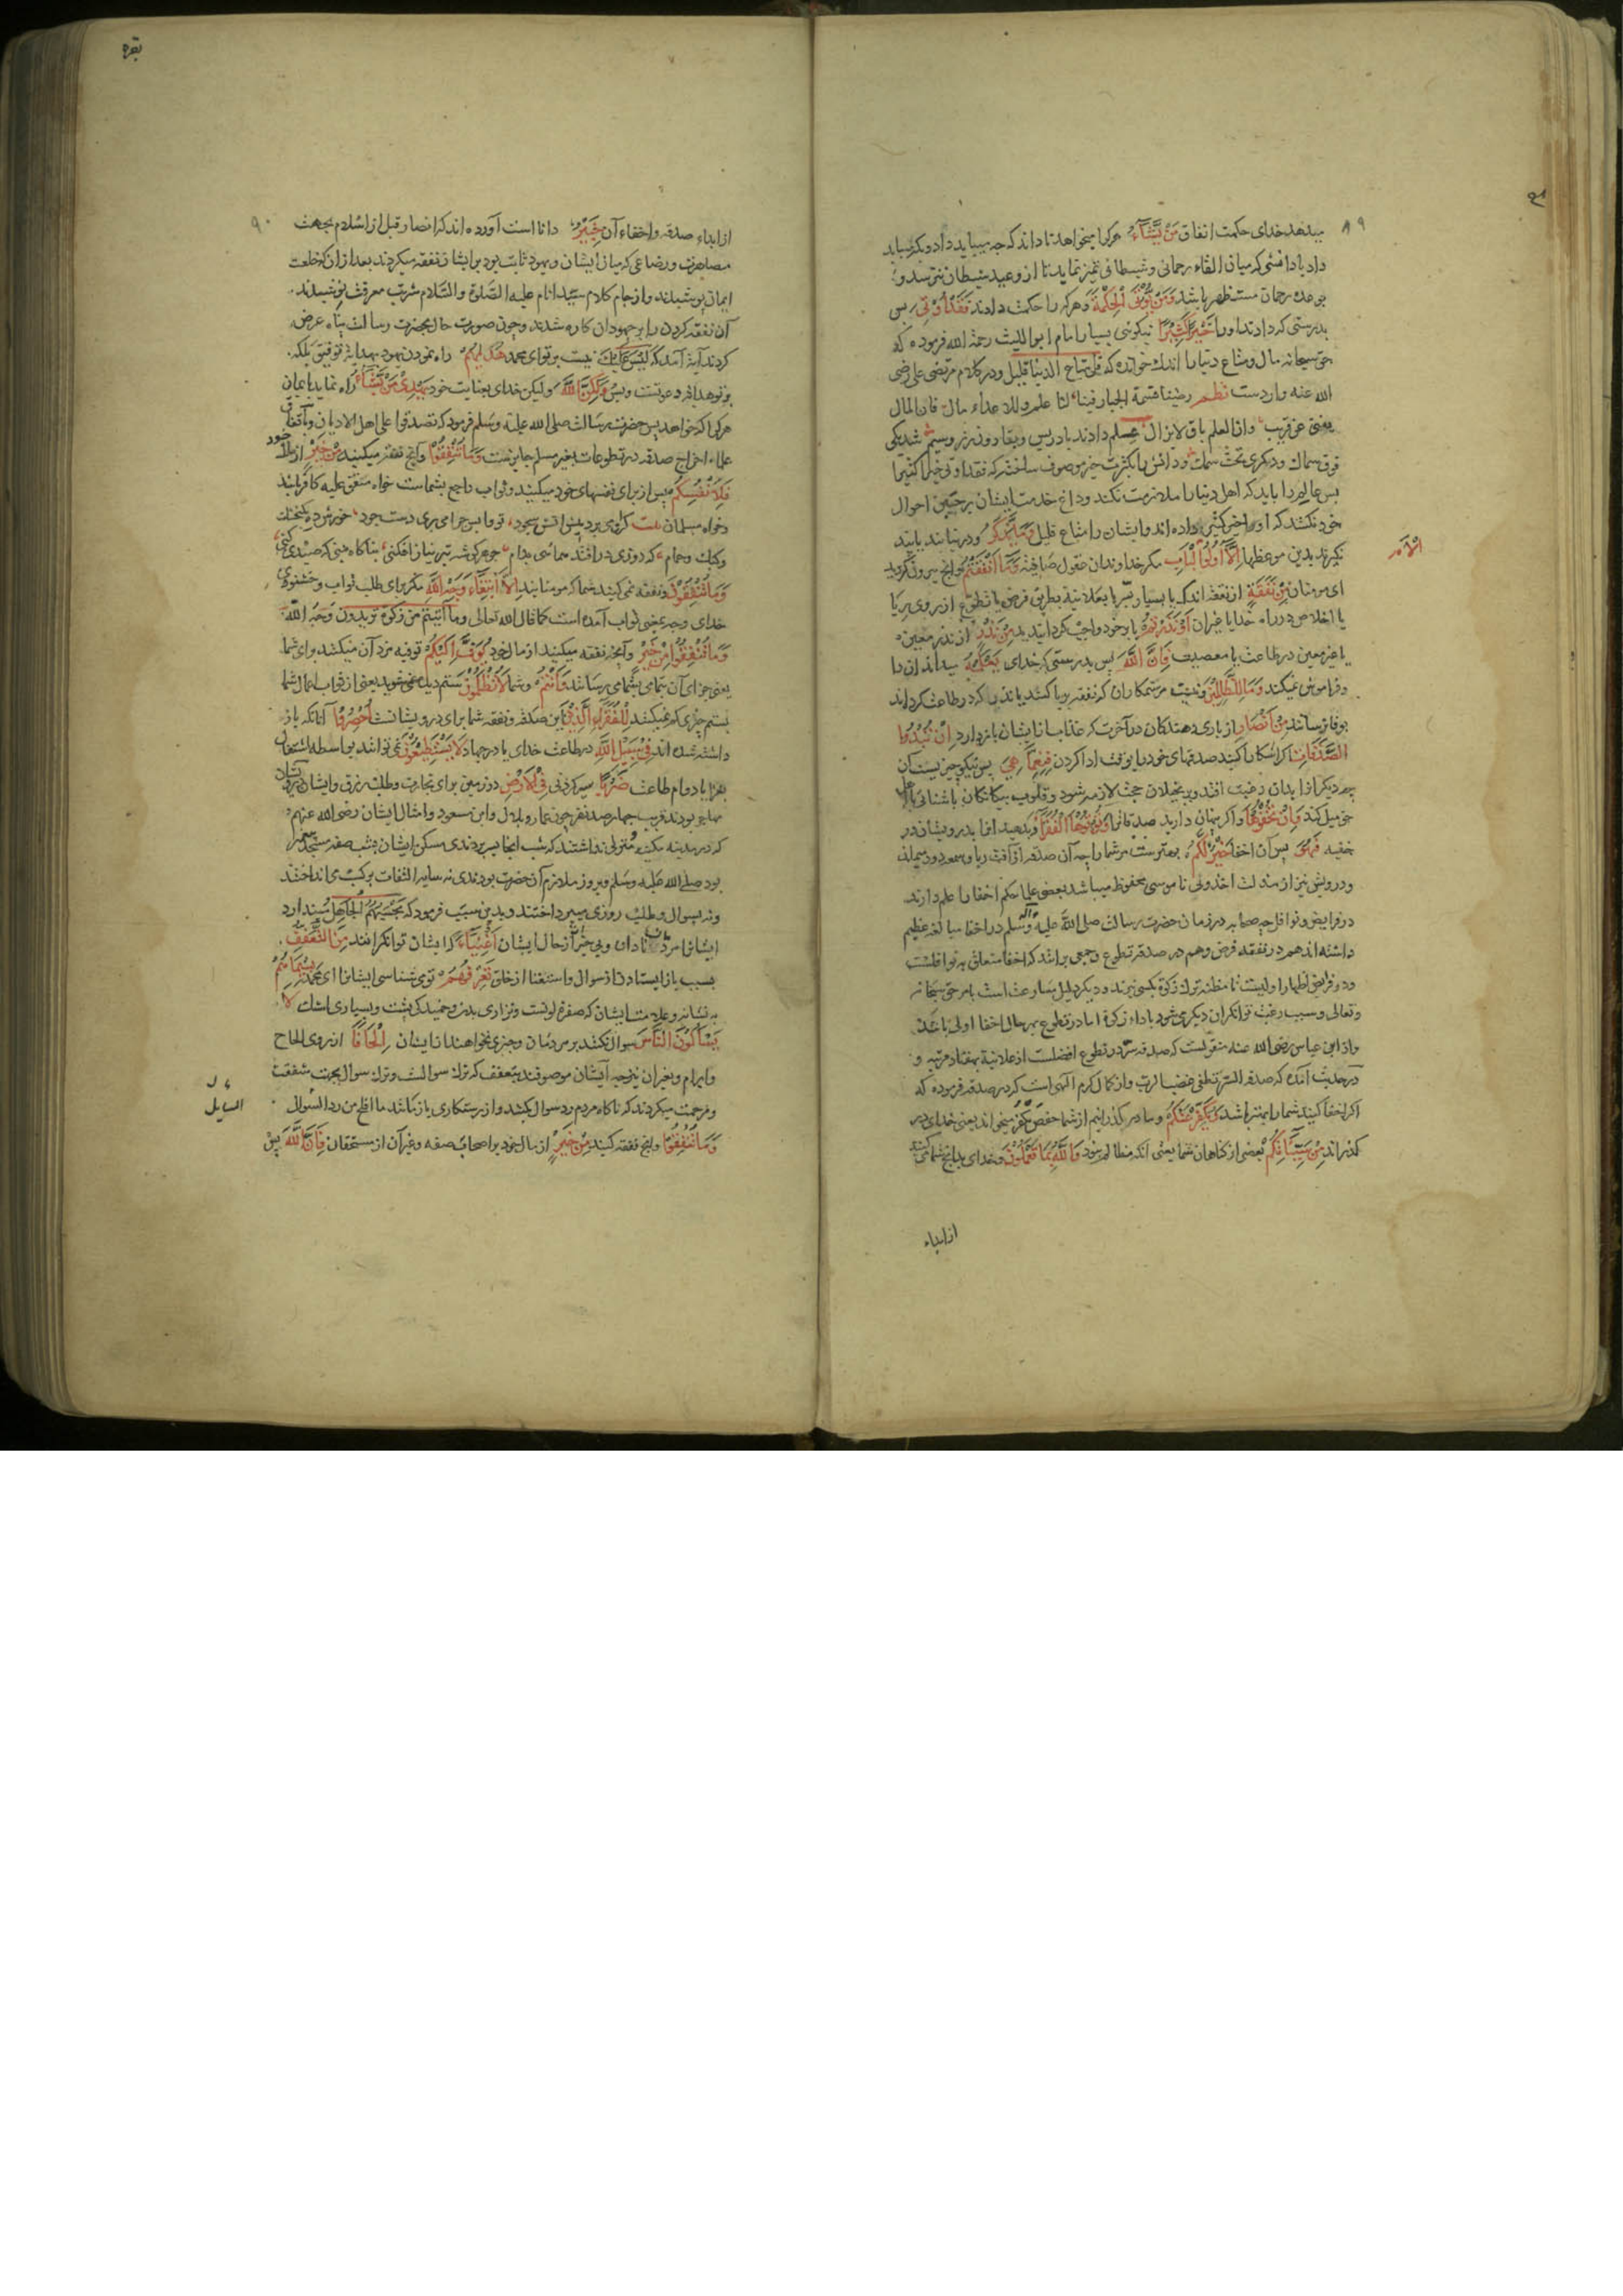 ۸۹
میدهد خدای حکمت انفاق مَنْ يَشَاءُ هرکرا میخواهد تا داند که چه میباید داد و بکه میباید
داد یا دانشی که میان القاء رحمانی و شیطانی تمیز نماید تا از وعید شیطان نترسد و
بوعده رحمان مستظهر باشد وَمَنْ يُؤْتَ الْحِكْمَةَ و هرکه را حکمت دادند فَقَدْ أُوتِيَ پس
بدرستی که دادند او را خَيْرًا كَثِيرًا نیکوئی بسیار امام ابواللیث رحمة الله فرموده که
حق سبحانه مال و متاع دنیا را اندک خوانده که قل متاع الدنیا قلیل و در کلام مرتضی علی رضی
الله عنه واردست نظم رضینا قسمة الجبار فینا لنا علم وللاعداء مال فان المال
یفنی عن قریب وان العلم باق لایزال علم دادند بادریس و بقارون زر و سیم شد یکی
فوق سماک و دیگری تحت سمک و دانش را بکثرت خیر موصوف ساخته که فقد اوتی خیرا کثیرا
پس عالم را باید که اهل دنیا را ملازمت نکند و داغ خدمت ایشان بر جبین احوال
خود نکشد که او را خیر کثیر داده اند و ایشان را متاع قلیل وَمَا يَذَّكَّرُ و در نیابند یا پند
نگیرند بدین موعظها إِلَّا أُولُوا الْأَلْبَابِ مگر خداوندان عقول صافیه وَمَا أَنْفَقْتُمْ و آنچه بیرون کردید
ای مومنان مِنْ نَفَقَةٍ از نفقه اندک یا بسیار سرّ یا بعلانیه بطریق فرض یا تطوع از روی ریا
یا اخلاص در راه خدا یا غیر آن أَوْ نَذَرْتُمْ یا بر خود واجب گردانیدید مِنْ نَذْرٍ از نذر معین
یا غیر معین در طاعت یا معصیت فَإِنَّ اللَّهَ پس بدرستی که خدای يَعْلَمُهُ میداند آن را
و فراموش نمیکند وَمَا لِلظَّالِمِينَ و نیست مر ستمکاران که نفقه بریا کنند یا نذری که در طاعت کرده اند
بوفا نرسانند مِنْ أَنْصَارٍ از یاری دهندگان در آخرت که عذاب از ایشان باز دارد إِنْ تُبْدُوا
الصَّدَقَاتِ اگر آشکارا کنید صدقهای خود را بوقت ادا کردن فَنِعِمَّا هِيَ پس نیکو چیزیست آن
چه دیگر انرا بدان رغبت افتد و بر بخیلان حجت لازم شود و قلوب بیگانگان باشنائی اهل
حق میل کند وَإِنْ تُخْفُوهَا و اگر پنهان دارید صدقاترا وَتُؤْتُوهَا الْفُقَرَاءَ و بدهید انرا بدرویشان در
خفیه فَهُوَ پس آن اخفا خَيْرٌ لَكُمْ بهترست مر شما را چه آن صدقه از آفت ریا و سمعه دور میماند
و درویش نیز از مذلت اخذ ونی ناموسی محفوظ میباشد بعضی علما حکم اخفا را عام دارند
در فرایض و نوافل چه صحابه در زمان حضرت رسالت صلی الله علیه وآله وسلم در اخفا مبالغه عظیم
داشته اند هم در نفقه فرض و هم در صدقه تطوع و جمعی برانند که اخفا متعلق به نوافلست
و در فرایض اظهار اولیست تا مظنه ترک زکوة بکسی نبرند و دیگر دلیل مسارعت است بامر حق سبحانه
وتعالی و سبب رغبت توانگران دیگری شود باداء زکوة اما در تطوع بهر حال اخفا اولی باشد
و از ابن عباس رضی الله عنه منقولست که صدقه سر در تطوع افضلست از علانیة بهفتاد مرتبه و
در حدیث آمده که صدقة السر تطفی غضب الرب و از کمال کرم الهی است که در صدقه فرموده که
اگر اخفا کنید شما را بهتر باشد وَيُكَفِّرُ عَنْكُمْ و ما در گذرانیم از شما حفص یکفر میخواند یعنی خدای در
گذراند مِنْ سَيِّئَاتِكُمْ بعضی از گناهان شما یعنی آنکه مظالم نبود وَاللَّهُ بِمَا تَعْمَلُونَ و خدای بدانچه شما میکنید
از ابداء
بقره
۹۰
از ابداء صدقه و اخفاء آن خَبِيرٌ دانا است آورده اند که انصار قبل از اسلام بجهت
مصاهرت و رضاعی که میان ایشان و یهود ثابت بود بر ایشان نفقه میکردند بعد از ان که خلعت
ایمان پوشیدند و از جام کلام سید انام علیه الصلوة والسلام شربت معرفت نوشیدند
آن نفقه کردن را بر جهودان کاره شدند و چون صورت حال بحضرت رسالت پناه عرض
کردند آیة آمد که لَيْسَ عَلَيْكَ نیست بر تو ای محمد هُدَاهُمْ راه نمودن یهود بهدایة توفیق بلکه
بر تو هدایة دعوتست و بس وَلَكِنَّ اللَّهَ ولیکن خدای بعنایت خود يَهْدِي مَنْ يَشَاءُ راه نماید بایمان
هرکرا که خواهد پس حضرت رسالت صلی الله علیه وسلم فرمود که تصدقوا علی اهل الادیان و باتفاق
علماء اخراج صدقه در تطوعات بغیر مسلم جایزست وَمَا تُنْفِقُوا و آنچه نفقه میکنید مِنْ خَيْرٍ از مال خود
فَلِأَنْفُسِكُمْ پس از برای نفسهای خود میکنید و ثواب راجع بشماست خواه منفق علیه کافر باشد
و خواه مسلمان
وَمَا تُنْفِقُونَ و نفقه نمی کنید شما که مومنانید إِلَّا ابْتِغَاءَ وَجْهِ اللَّهِ مگر برای طلب ثواب و خشنودی
خدای وجه بمعنی ثواب آمده است کما قال الله تعالی وما آتیتم من زکوة تریدون وجه الله
وَمَا تُنْفِقُوا مِنْ خَيْرٍ و آنچه نفقه میکنید از مال خود يُوَفَّ إِلَيْكُمْ توفیه مزد آن میکنند برای شما
یعنی جزای آن بتمامی بشما می رسانند وَأَنْتُمْ و شما لَا تُظْلَمُونَ ستم دیده نمی شوید یعنی از ثواب اعمال شما
بستم چیزی کم نمیکنند لِلْفُقَرَاءِ الَّذِينَ این صدقه و نفقه شما برای درویشانست أُحْصِرُوا آنانکه باز
داشته شده اند فِي سَبِيلِ اللَّهِ در طاعت خدای یا در جهاد لَا يَسْتَطِيعُونَ نمی توانند بواسطه اشتغال
بغزا یا دوام طاعت ضَرْبًا سیر کردنی فِي الْأَرْضِ در زمین برای تجارت و طلب رزق و ایشان
مهاجر بودند قریب چهارصد نفر چون عمار و بلال و ابن مسعود و امثال ایشان رضی الله عنهم
که در مدینه مکنت و منزلی نداشتند که شب انجا بسر بردندی مسکن ایشان بشب صفه مسجد پیغمبر
بود صلی الله علیه وسلم و بروز ملازم آن حضرت بودندی نه سایه التفات بر کسب می انداختند
و نه بسوال و طلب روزی میپرداختند و بدین سبب فرمود که يَحْسَبُهُمُ الْجَاهِلُ می پندارد
ایشانرا مرد نادان و بی خبر از حال ایشان أَغْنِيَاءَ که ایشان توانگرانند مِنَ التَّعَفُّفِ
بسبب باز ایستادن از سوال و استغنا از خلق تَعْرِفُهُمْ توی شناسی ایشانرا ای محمد بِسِيمَاهُمْ
به نشانه و علامت ایشان که صفرة لونست و نزاری بدن و خمیدگی پشت و بسیاری اشک لَا
يَسْأَلُونَ النَّاسَ سوال نکنند بر مردمان و چیزی نخواهند از ایشان إِلْحَافًا از روی الحاح
و ابرام و بغیر آن نیز چه ایشان موصوفند بتعفف که ترک سوالست و ترک سوال بجهت شفقت
و مرحمت میکردند که ناگاه مردم رد سوال کنند و از رستگاری باز مانند ما افلح من رد السوال
السایل
وَمَا تُنْفِقُوا و آنچه نفقه کنید مِنْ خَيْرٍ از مال خود بر اصحاب صفه و غیر آن از مستحقان فَإِنَّ اللَّهَ پس